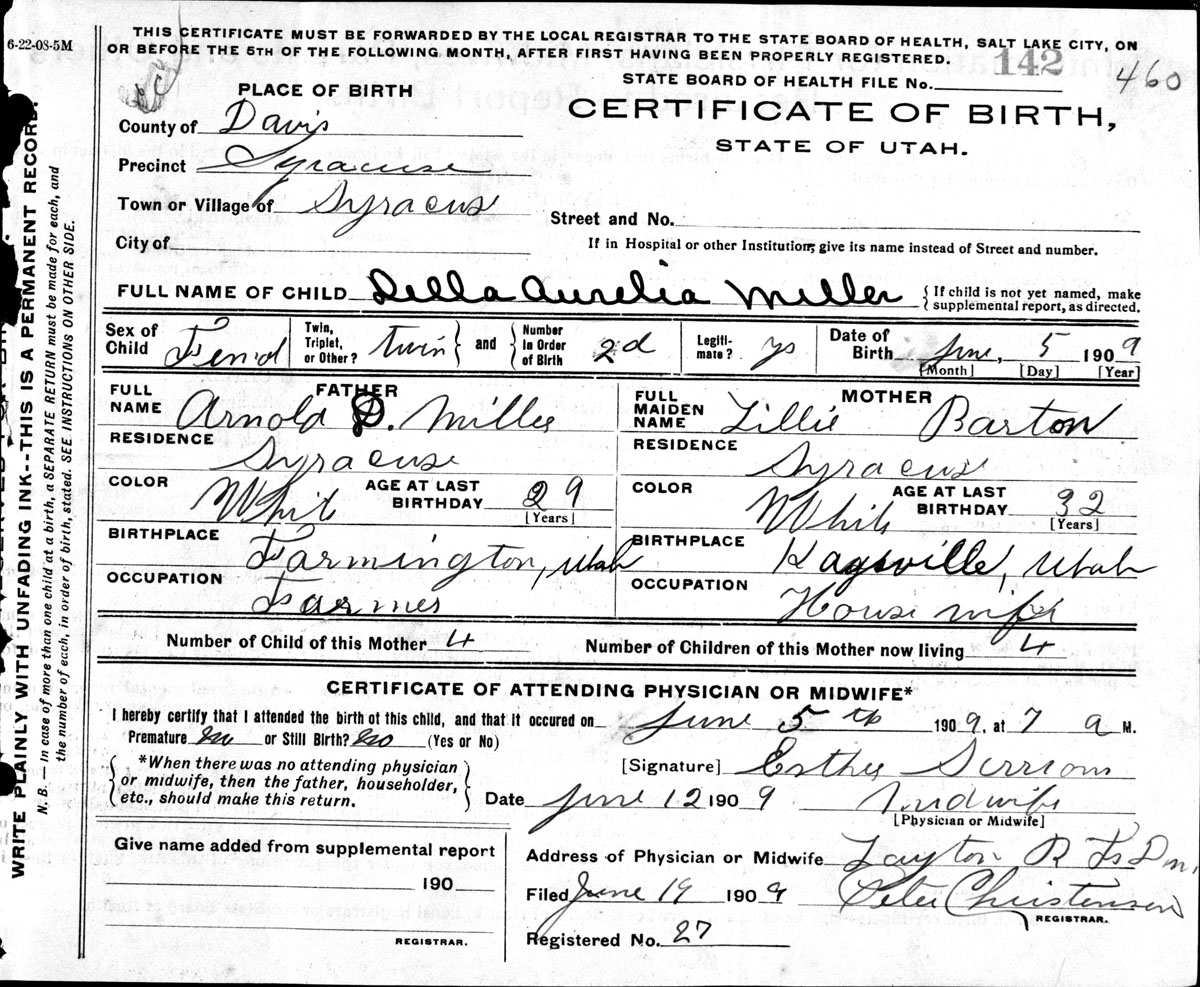 6-22-08-5M
THIS CERTIFICATE MUST BE FORWARDED BY THE LOCAL REGISTRAR TO THE STATE BOARD OF HEALTH, SALT LAKE CITY, ON
OR BEFORE THE 5TH OF THE FOLLOWING MONTH, AFTER FIRST HAVING BEEN PROPERLY REGISTERED.
STATE BOARD OF HEALTH FILE No. 142 460
WRITE PLAINLY WITH UNFADING INK--THIS IS A PERMANENT RECORD.
N. B. — In case of more than one child at a birth, a SEPARATE RETURN must be made for each, and
the number of each, in order of birth, stated. SEE INSTRUCTIONS ON OTHER SIDE.
PLACE OF BIRTH
CERTIFICATE OF BIRTH,
STATE OF UTAH.
County of Davis
Precinct Syracuse
Town or Village of Syracuse
Street and No.
City of
If in Hospital or other Institution, give its name instead of Street and number.
FULL NAME OF CHILD Della Aurelia Miller { If child is not yet named, make
supplemental report, as directed.
Sex of Child Twin, Triplet, or Other? twin and Number in Order of Birth 2d Legiti-mate? ys Date of Birth June, 5 1909
[Month] [Day] [Year]
FATHER
FULL NAME Arnold D. Miller
RESIDENCE Syracuse
COLOR White AGE AT LAST BIRTHDAY 29
[Years]
BIRTHPLACE Farmington, Utah
OCCUPATION Farmer
MOTHER
FULL MAIDEN NAME Lillie Barton
RESIDENCE Syracuse
COLOR White AGE AT LAST BIRTHDAY 32
[Years]
BIRTHPLACE Kaysville, Utah
OCCUPATION House wife
Number of Child of this Mother 4 Number of Children of this Mother now living 4
CERTIFICATE OF ATTENDING PHYSICIAN OR MIDWIFE*
I hereby certify that I attended the birth of this child, and that it occured on June 5th 1909, at 7 a M.
Premature No or Still Birth? No (Yes or No)
*When there was no attending physician
or midwife, then the father, householder,
etc., should make this return.
[Signature] Esther
Date June 12 1909 midwife
[Physician or Midwife]
Give name added from supplemental report
190
REGISTRAR.
Address of Physician or Midwife Layton R F D
Filed June 19 1909 Peter Christensen
REGISTRAR.
Registered No. 27